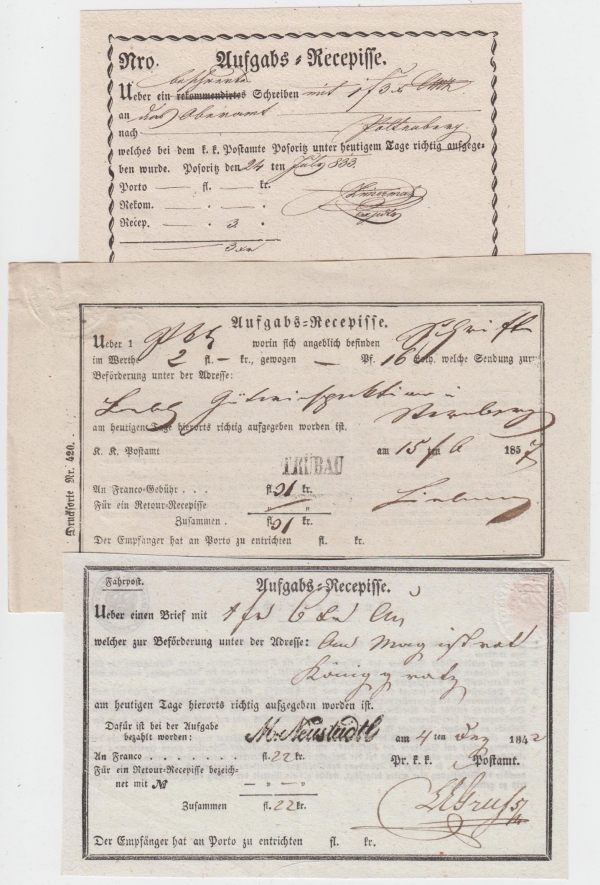 Nro. Aufgabs-Recepisse.
beschwerte
Ueber ein rekommendirtes Schreiben mit 1 f 3 x
an das Oberamt
nach
welches bei dem k. k. Postamte Posoritz unter heutigem Tage richtig aufgege-
ben wurde. Posoritz den 24 ten July 833.
Porto — fl. — kr.
Rekom. — . — .
Recep. — . 3 .
3 xr
Aufgabs-Recepisse.
Ueber 1 worin sich angeblich befinden Schriften
im Werthe 2 fl. — kr., gewogen — Pf. 16 Loth, welche Sendung zur
Beförderung unter der Adresse:
Güterinspektion in Sternberg
am heutigen Tage hierorts richtig aufgegeben worden ist.
K. K. Postamt am 15 ten 6 1857
TRÜBAU
An Franco-Gebühr . . . fl. 31 kr.
Für ein Retour-Recepisse „ „
Zusammen . fl. 31 kr.
Der Empfänger hat an Porto zu entrichten fl. kr.
Drucksorte Nr. 420.
Fahrpost. Aufgabs-Recepisse.
Ueber einen Brief mit 1 f 6 x
welcher zur Beförderung unter der Adresse: An Magistrat
Königgratz
am heutigen Tage hierorts richtig aufgegeben worden ist.
Dafür ist bei der Aufgabe
bezahlt worden: M: Neustadtl am 4 ten Dez 1842
An Franco . . . . . . . fl. 22 kr. Pr. k. k. Postamt.
Für ein Retour-Recepisse bezeich-
net mit № — „ — „
Zusammen fl. 22 kr.
Der Empfänger hat an Porto zu entrichten fl. kr.